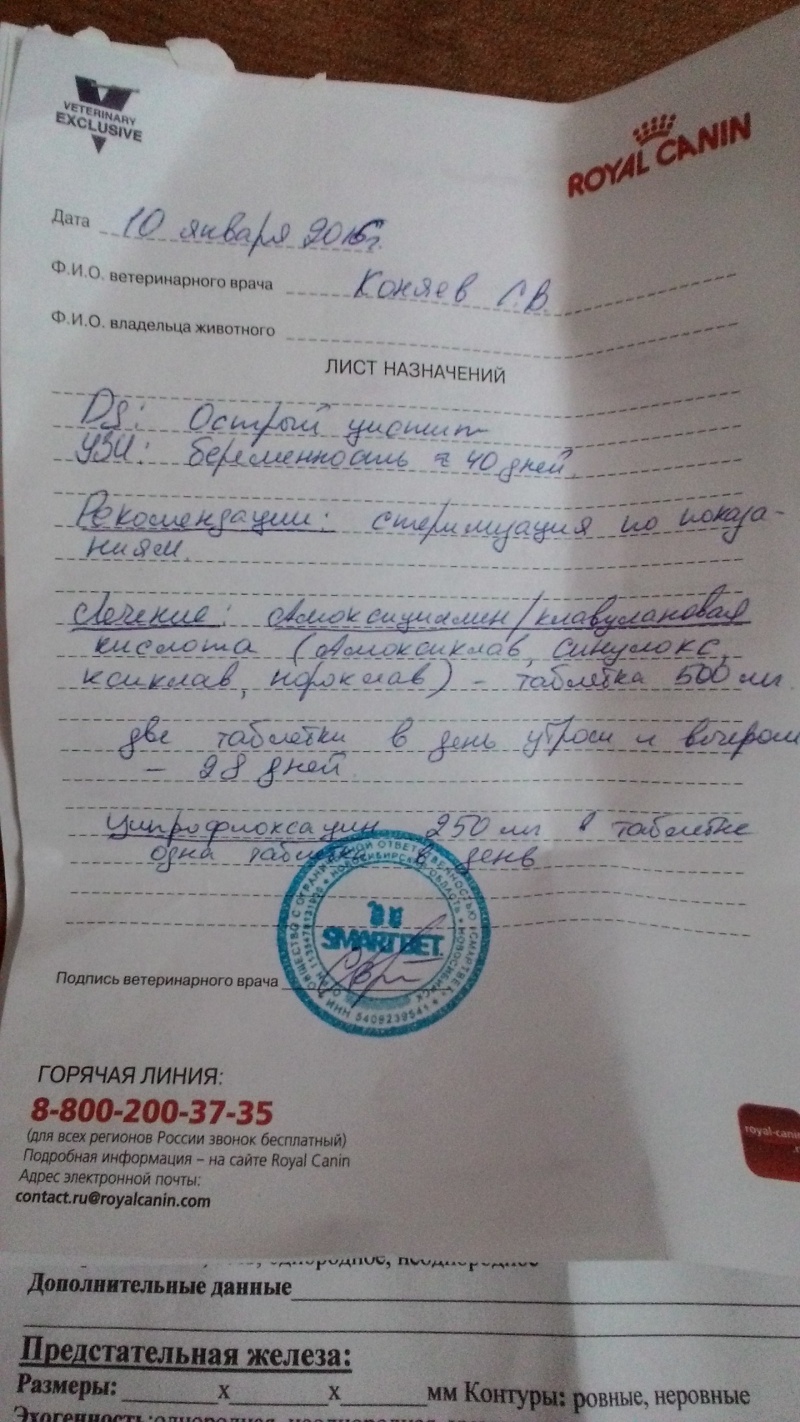 VETERINARY
EXCLUSIVE
ROYAL CANIN
Дата 10 января 2016г.
Ф.И.О. ветеринарного врача Коняев С.В.
Ф.И.О. владельца животного
ЛИСТ НАЗНАЧЕНИЙ
DS: Острый цистит
УЗИ: беременность ≈ 40 дней.
Рекомендации: стерилизация по показа-
ниям.
Лечение: Амоксициллин/клавулановая
кислота (Амоксиклав, синулокс,
ксиклав, нороклав) – таблетка 500 мг
две таблетки в день утром и вечером
– 28 дней.
Ципрофлоксацин 250 мг в таблетке
одна таблетка в день
ОБЩЕСТВО С ОГРАНИЧЕННОЙ ОТВЕТСТВЕННОСТЬЮ «СМАРТВЕТ»
НОВОСИБИРСКАЯ ОБЛАСТЬ НОВОСИБИРСК
ИНН 5409239541
SMARTВЕТ
Подпись ветеринарного врача
ГОРЯЧАЯ ЛИНИЯ:
8-800-200-37-35
(для всех регионов России звонок бесплатный)
Подробная информация – на сайте Royal Canin
Адрес электронной почты:
contact.ru@royalcanin.com
royal-canin
однородное, неоднородное
Дополнительные данные
Предстательная железа:
Размеры: х х мм Контуры: ровные, неровные
Эхогенность: однородная, неоднородная